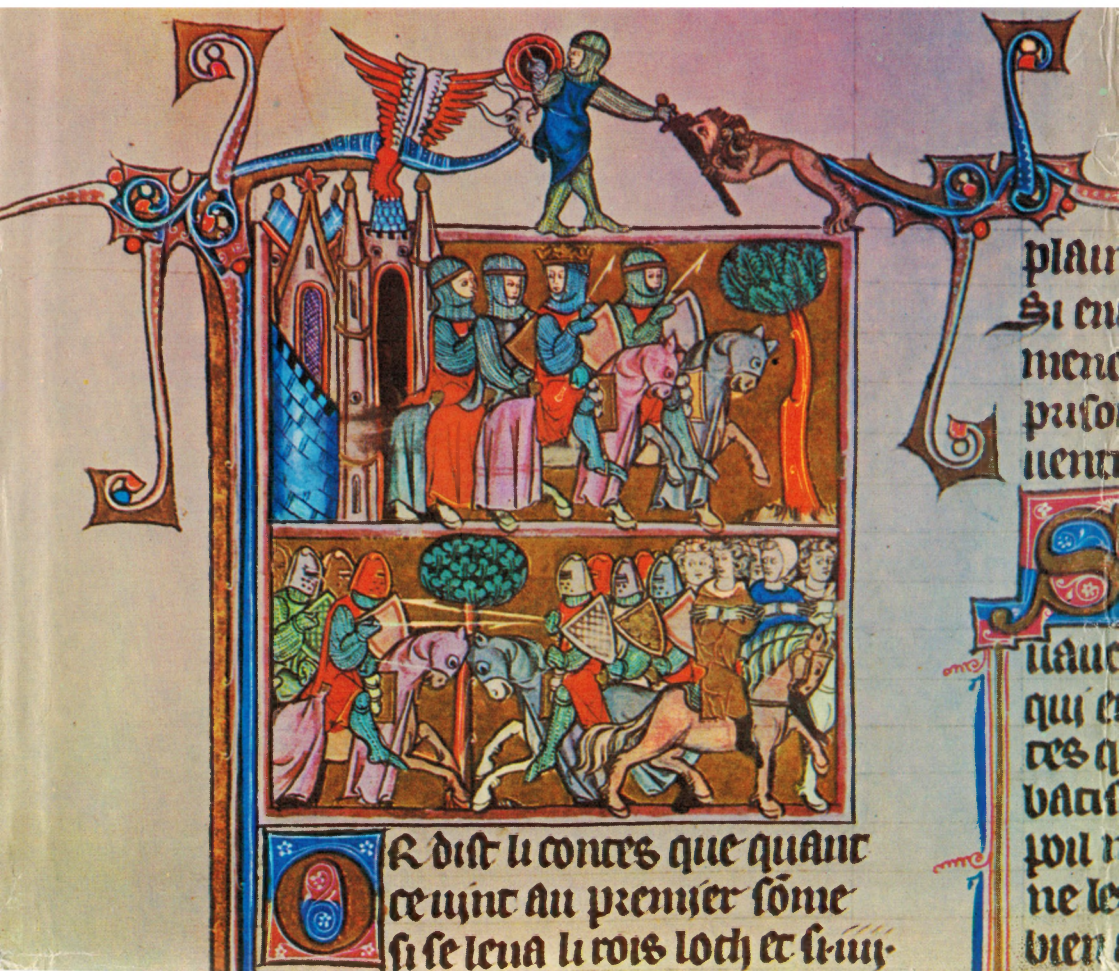 OR dist li contes que quant
ce uint au premier sõme
si se leua li rois loth et si·iiij·
plain
Si en
mena
priso
uent
uaue
qui e
ces q
bati
poil
ne le
bien